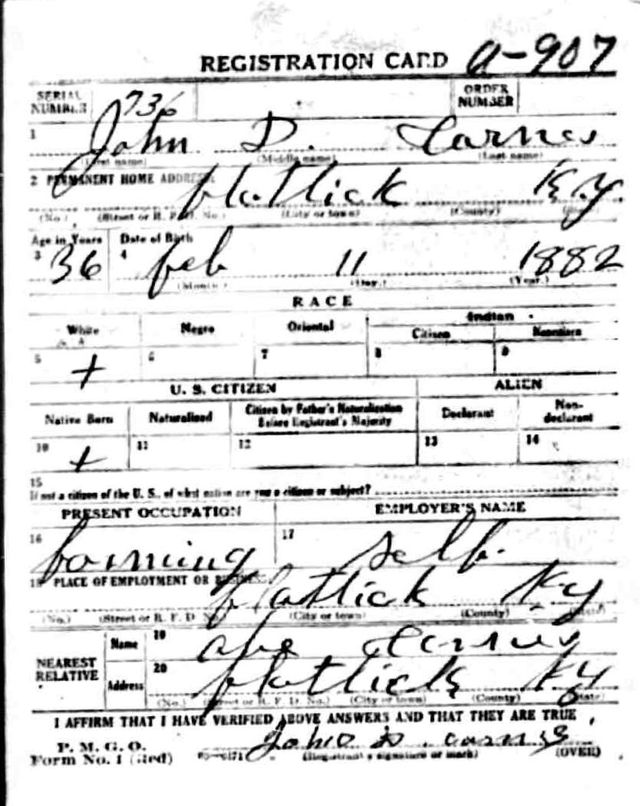 REGISTRATION CARD a-907
SERIAL NUMBER 736 ORDER NUMBER
1 John D. Carnes
(First name) (Middle name) (Last name)
2 PERMANENT HOME ADDRESS: flatlick Ky
(No.) (Street or R. F. D. No.) (City or town) (County) (State)
Age in Years Date of Birth
3 36 4 feb 11 1882
(Month) (Day.) (Year.)
RACE
White Negro Oriental Indian
Citizen Noncitizen
5 + 6 7 8 9
U. S. CITIZEN ALIEN
Native Born Naturalized Citizen by Father's Naturalization Before Registrant's Majority Declarant Non-declarant
10 + 11 12 13 14
15
If not a citizen of the U. S., of what nation are you a citizen or subject?
PRESENT OCCUPATION EMPLOYER'S NAME
16 farming 17 self.
18 PLACE OF EMPLOYMENT OR BUSINESS: flatlick Ky
(No.) (Street or R. F. D. No.) (City or town) (County) (State)
NEAREST RELATIVE Name 19 abe Carnes
Address 20 flatlick Ky
(No.) (Street or R. F. D. No.) (City or town) (County) (State)
I AFFIRM THAT I HAVE VERIFIED ABOVE ANSWERS AND THAT THEY ARE TRUE
P. M. G. O. John D. Carnes
Form No. 1 (Red) (Registrant's signature or mark) (OVER)